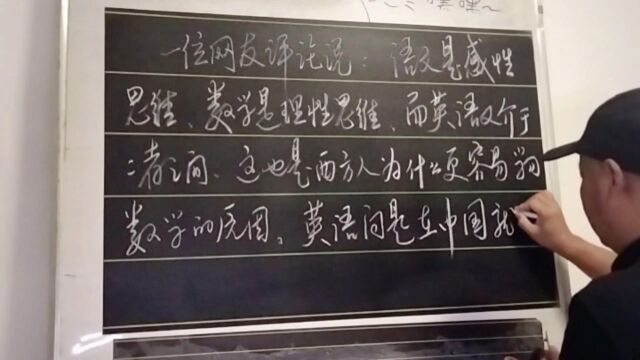 嘿嘿~
一位网友评论说：语文是感性
思维、数学是理性思维、而英语又介于
二者之间、这也是西方人为什么更容易学
数学的原因。英语问是在中国就